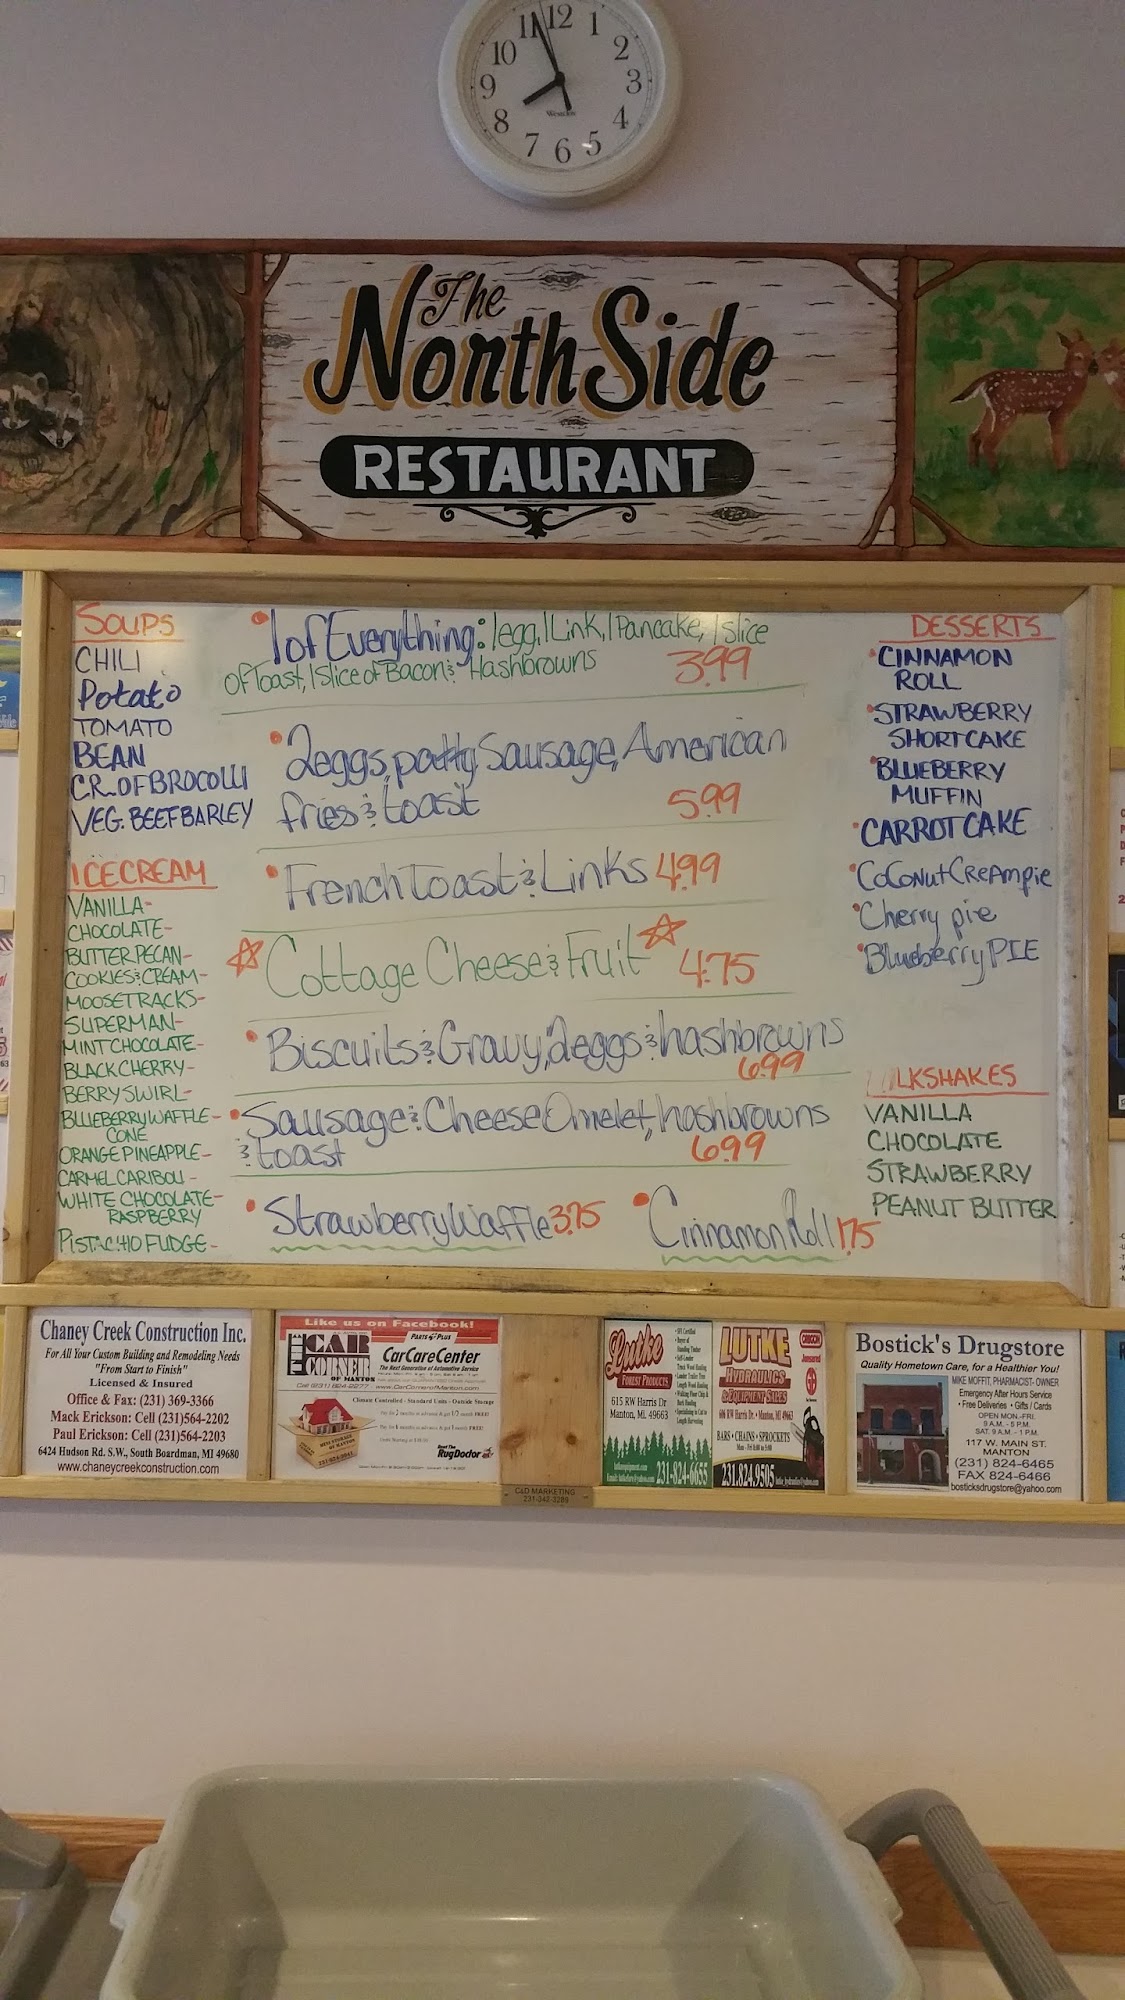 12
1
2
3
4
5
6
7
8
9
10
11
The
North Side
RESTAURANT
SOUPS
CHILI
Potato
TOMATO
BEAN
CR. OF BROCOLLI
VEG. BEEF BARLEY
ICE CREAM
VANILLA-
CHOCOLATE-
BUTTER PECAN-
COOKIES & CREAM-
MOOSETRACKS-
SUPERMAN-
MINT CHOCOLATE-
BLACK CHERRY-
BERRY SWIRL-
BLUEBERRY WAFFLE-
CONE
ORANGE PINEAPPLE-
CARMEL CARIBOU-
WHITE CHOCOLATE-
RASPBERRY
PISTACHIO FUDGE-
•1 of Everything: 1 egg, 1 Link, 1 Pancake, 1 slice
of Toast, 1 Slice of Bacon & Hashbrowns 3.99
•2 eggs, patty Sausage, American
fries & toast 5.99
•French Toast & Links 4.99
Cottage Cheese & Fruit 4.75
•Biscuits & Gravy, 2 eggs & hashbrowns
6.99
•Sausage & Cheese Omelet, hashbrowns
& toast 6.99
•Strawberry Waffle 3.75
•Cinnamon Roll 1.75
DESSERTS
•CINNAMON
ROLL
•STRAWBERRY
SHORTCAKE
•BLUEBERRY
MUFFIN
•CARROT CAKE
•Coconut Cream pie
•Cherry pie
•Blueberry PIE
LKSHAKES
VANILLA
CHOCOLATE
STRAWBERRY
PEANUT BUTTER
Chaney Creek Construction Inc.
For All Your Custom Building and Remodeling Needs
"From Start to Finish"
Licensed & Insured
Office & Fax: (231) 369-3366
Mack Erickson: Cell (231)564-2202
Paul Erickson: Cell (231)564-2203
6424 Hudson Rd. S.W., South Boardman, MI 49680
www.chaneycreekconstruction.com
Like us on Facebook!
THE CAR
CORNER
OF MANTON
Call (231) 824-2277
PARTS PLUS
CarCareCenter
The Next Generation of Automotive Service
www.CarCornerofManton.com
Climate Controlled - Standard Units - Outside Storage
MINI STORAGE
OF MANTON
Rent The
RugDoctor
C&D MARKETING
231-342-3289
Lutke
FOREST PRODUCTS
615 RW Harris Dr
Manton, MI. 49663
231-824-6655
LUTKE
HYDRAULICS
& EQUIPMENT SALES
606 RW Harris Dr. • Manton, MI 49663
BARS • CHAINS • SPROCKETS
231.824.9505
OREGON
Jonsered
Bostick's Drugstore
Quality Hometown Care, for a Healthier You!
MIKE MOFFIT, PHARMACIST- OWNER
Emergency After Hours Service
• Free Deliveries • Gifts / Cards
OPEN MON.-FRI.
9 A.M. - 5 P.M.
SAT. 9 A.M. - 1 P.M.
117 W. MAIN ST.
MANTON
(231) 824-6465
FAX 824-6466
bosticksdrugstore@yahoo.com